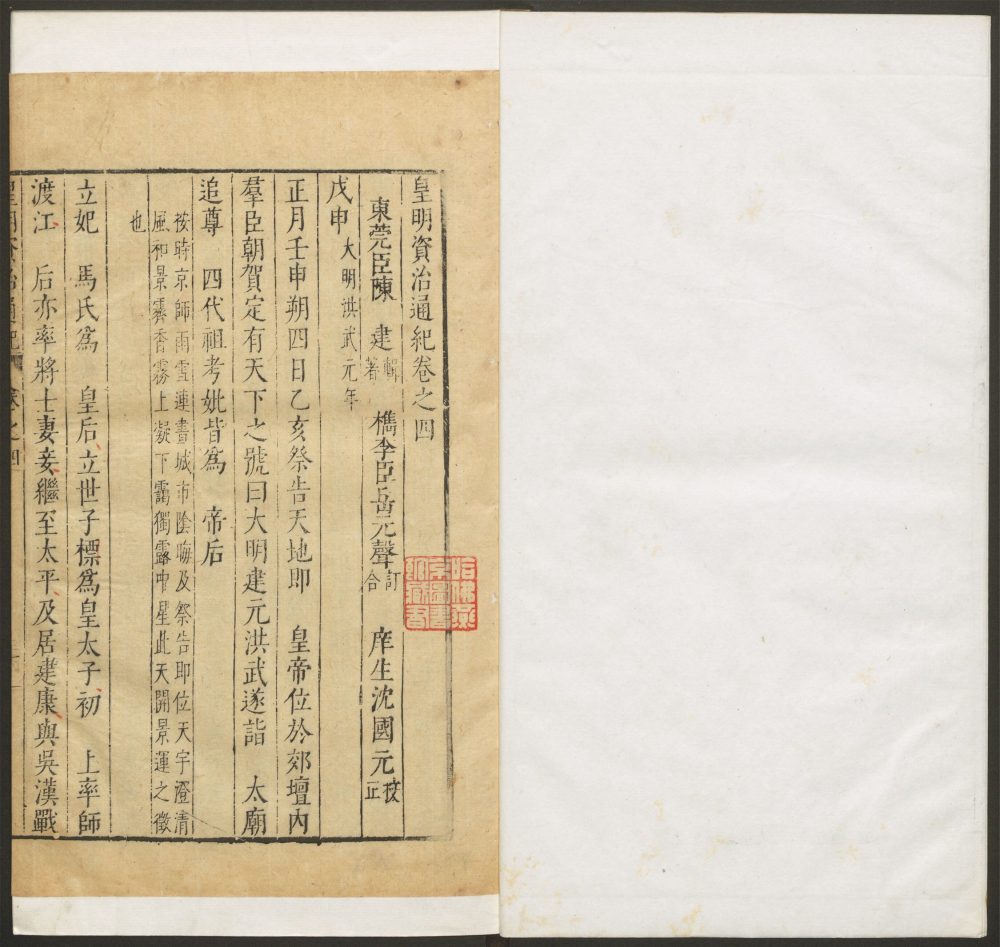 皇明資治通紀卷之四
東莞臣陳 建 輯著 檇李臣岳元聲 訂合 庠生沈國元 校正
戊申 大明洪武元年
正月壬申朔四日乙亥祭告天地即 皇帝位於郊壇內
羣臣朝賀定有天下之號曰大明建元洪武遂詣 太廟
追尊 四代祖考妣皆為 帝后
按時京師雨雪連晝城市陰晦及祭告即位天宇澄清
風和景霽香霧上凝下靄獨露中星此天開景運之徵
也
立妃 馬氏為 皇后立世子標為皇太子初 上率師
渡江 后亦率將士妻妾繼至太平及居建康與吳漢戰
皇明資治通紀 卷之四
哈佛燕京圖書館藏書